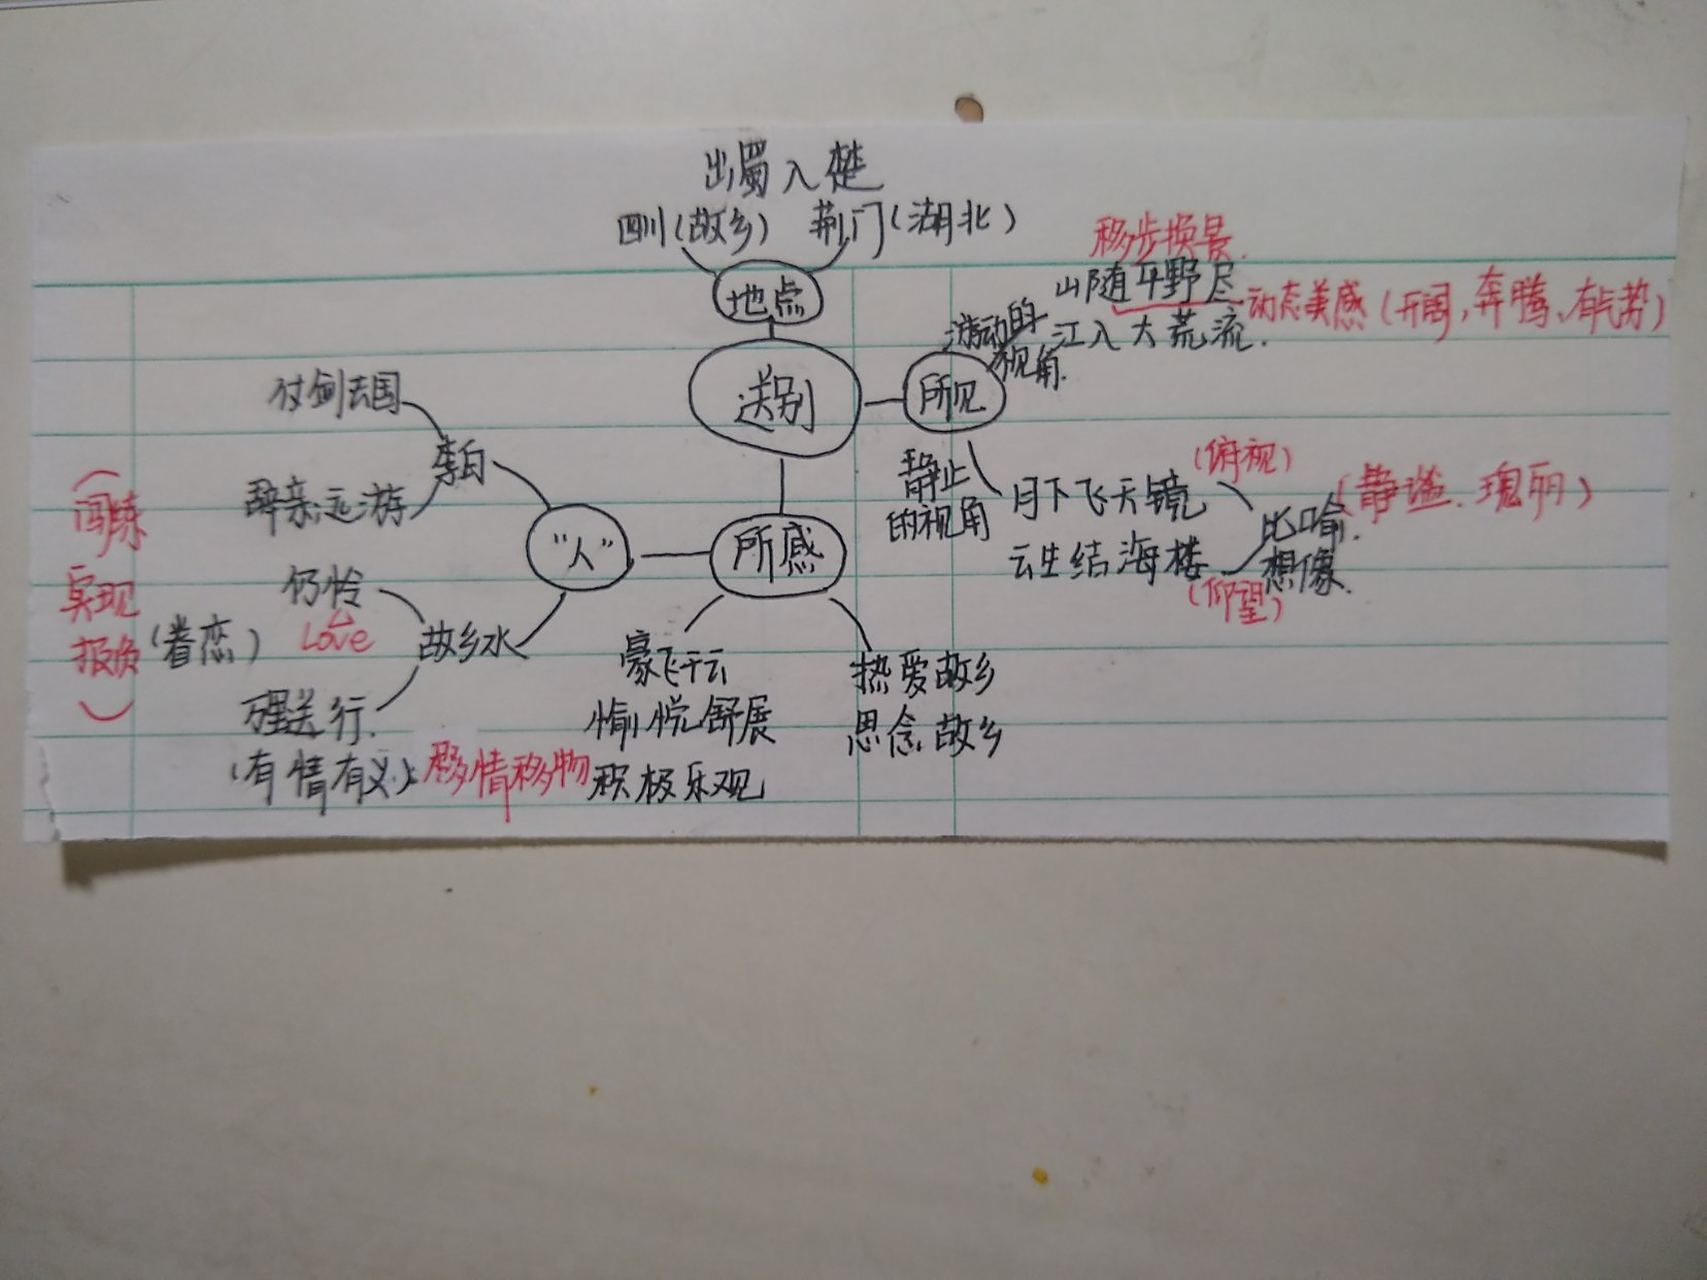 出蜀入楚
四川(故乡) 荆门(湖北)
移步换景.
地点
山随平野尽
动态美感(开阔,奔腾、有气势)
游动的
视角.
江入大荒流.
送别
所见
仗剑去国
李白
辞亲远游
静止
的视角
(俯视)
月下飞天镜
云生结海楼
(仰望)
比喻.
想像.
(静谧.瑰丽)
"人"
所感
(闯练
实现
报负)
仍怜
Love
(眷恋)
故乡水
万里送行.
(有情有义)
移情移物
豪飞干云
愉悦舒展
积极乐观
热爱故乡
思念故乡